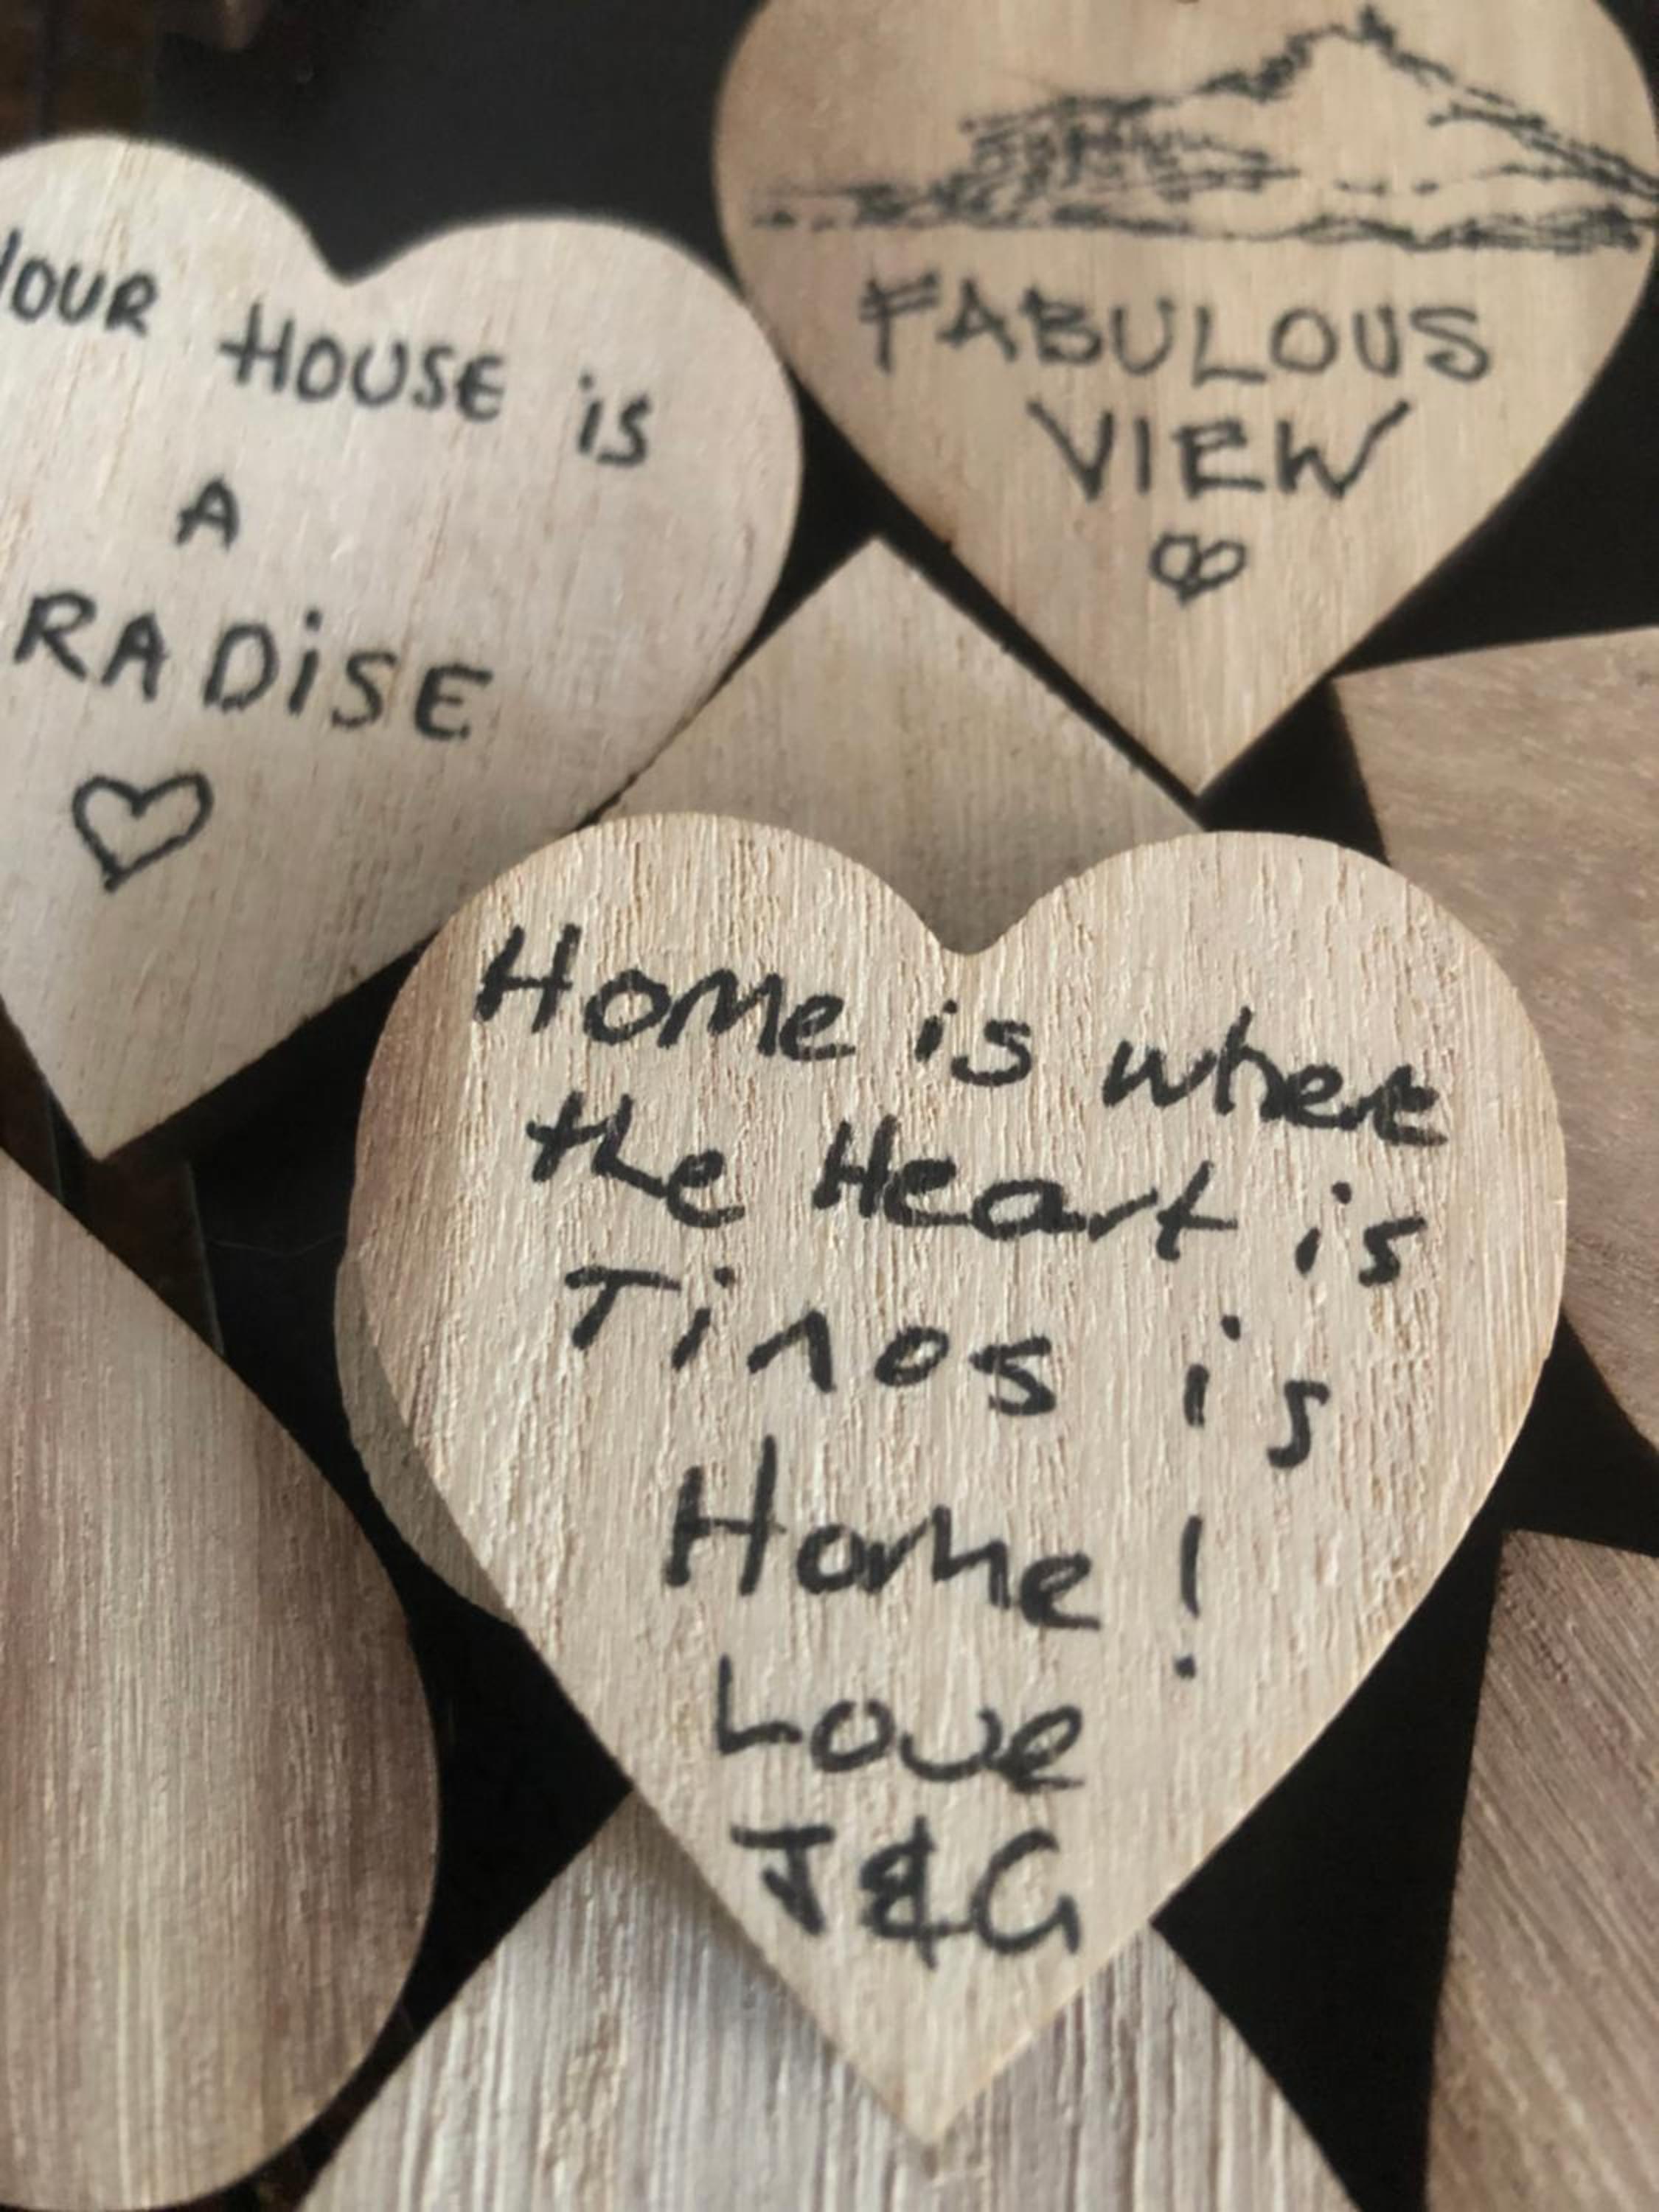 YOUR HOUSE is
A
RADiSE
FABULOUS
VIEW
Home is where
the Heart is
Tinos is
Home!
Love
J&G